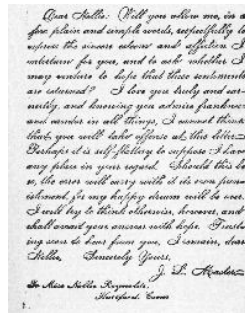 Dear Nellie: Will you allow me, in a
few plain and simple words, respectfully to
express the sincere esteem and affection I
entertain for you, and to ask whether I
may venture to hope that these sentiments
are returned? I love you truly and ear-
nestly, and knowing you admire frankness
and candor in all things, I cannot think
that you will take offense at this letter.
Perhaps it is self-flattery to suppose I have
any place in your regard. Should this be
so, the error will carry with it its own pun-
ishment, for my happy dream will be over.
I will try to think otherwise, however, and
shall await your answer with hope. Trust-
ing soon to hear from you, I remain, dear
Nellie, Sincerely Yours,
J. L. Master
To Miss Nellie Reynolds,
Hartford, Conn